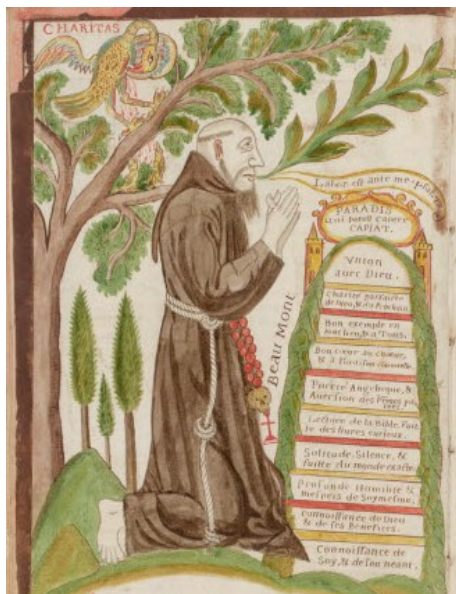 CHARITAS
Labor est ante me
PARADIS
qui potest capere
CAPIAT.
Union
avec Dieu.
Charité parfaite
Bon exemple en
tout lieu, & a Tous.
Bon cœur au Chœur,
Pureté Angelique, &
Aversion des
Lecture de la Bible, fuit
te des livres curieux.
Solitude, Silence, &
fuitte du monde exacte.
Profonde Humilité &
mespris de Soymesme.
Connoissance de Dieu
& de ses Benefices.
Connoissance de
Soy, & de son neant.
BEAU MONT